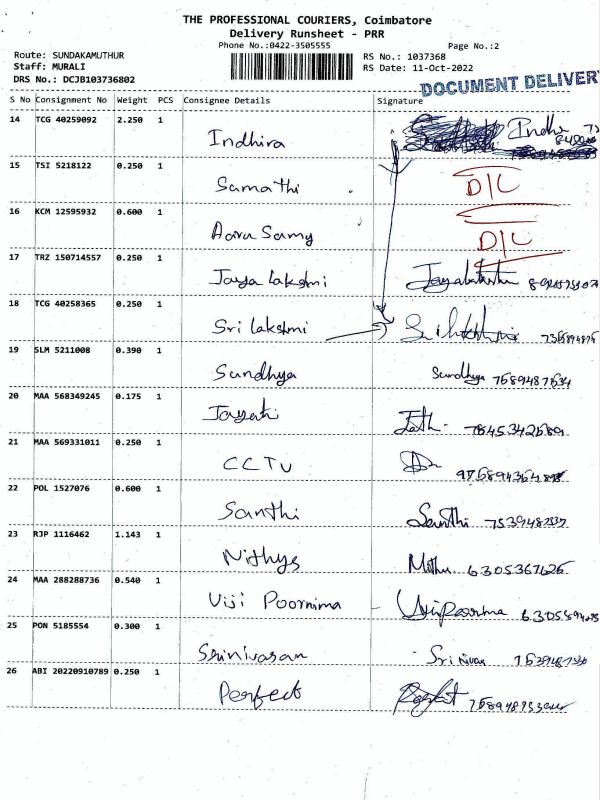 THE PROFESSIONAL COURIERS, Coimbatore
Delivery Runsheet - PRR
Phone No.:0422-3505555 Page No.:2
Route: SUNDAKAMUTHUR RS No.: 1037368
Staff: MURALI RS Date: 11-Oct-2022
DRS No.: DCJB103736802
DOCUMENT DELIVER
S No Consignment No Weight PCS Consignee Details Signature
14 TCG 40259092 2.250 1
Indhira
15 TSI 5218122 0.250 1
Sumathi D/C
16 KCM 12595932 0.600 1
Aara Samy D/C
17 TRZ 150714557 0.250 1
Jaya lakshmi
18 TCG 40258365 0.250 1
Sri lakshmi
19 SLM 5211008 0.390 1
Sundhya Sundhya
20 MAA 568349245 0.175 1
21 MAA 569331011 0.250 1
CCTV
22 POL 1527076 0.600 1
Santhi Santhi
23 RJP 1116462 1.143 1
Nithya
24 MAA 288288736 0.540 1
Viji Poornima
25 PON 5185554 0.300 1
Srinivasan
26 ABI 20220910789 0.250 1
Perfect